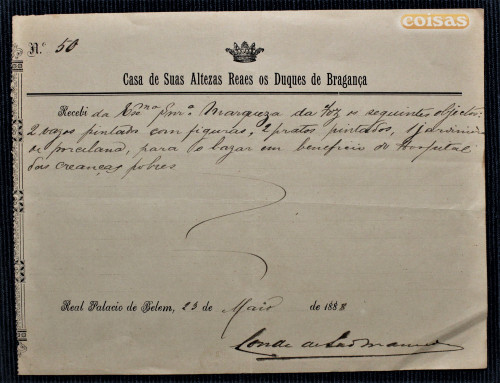 coisas
N.º 50
Casa de Suas Altezas Reaes os Duques de Bragança
Recebi da Exma Snra Marqueza da Foz os seguintes objectos:
2 vazos pintado com figuras, 2 pratos pintados, 1 jardineira
de porcelana, para o bazar em beneficio do Hospital
das creanças pobres
Real Palacio de Belem, 23 de Maio de 188
Conde de